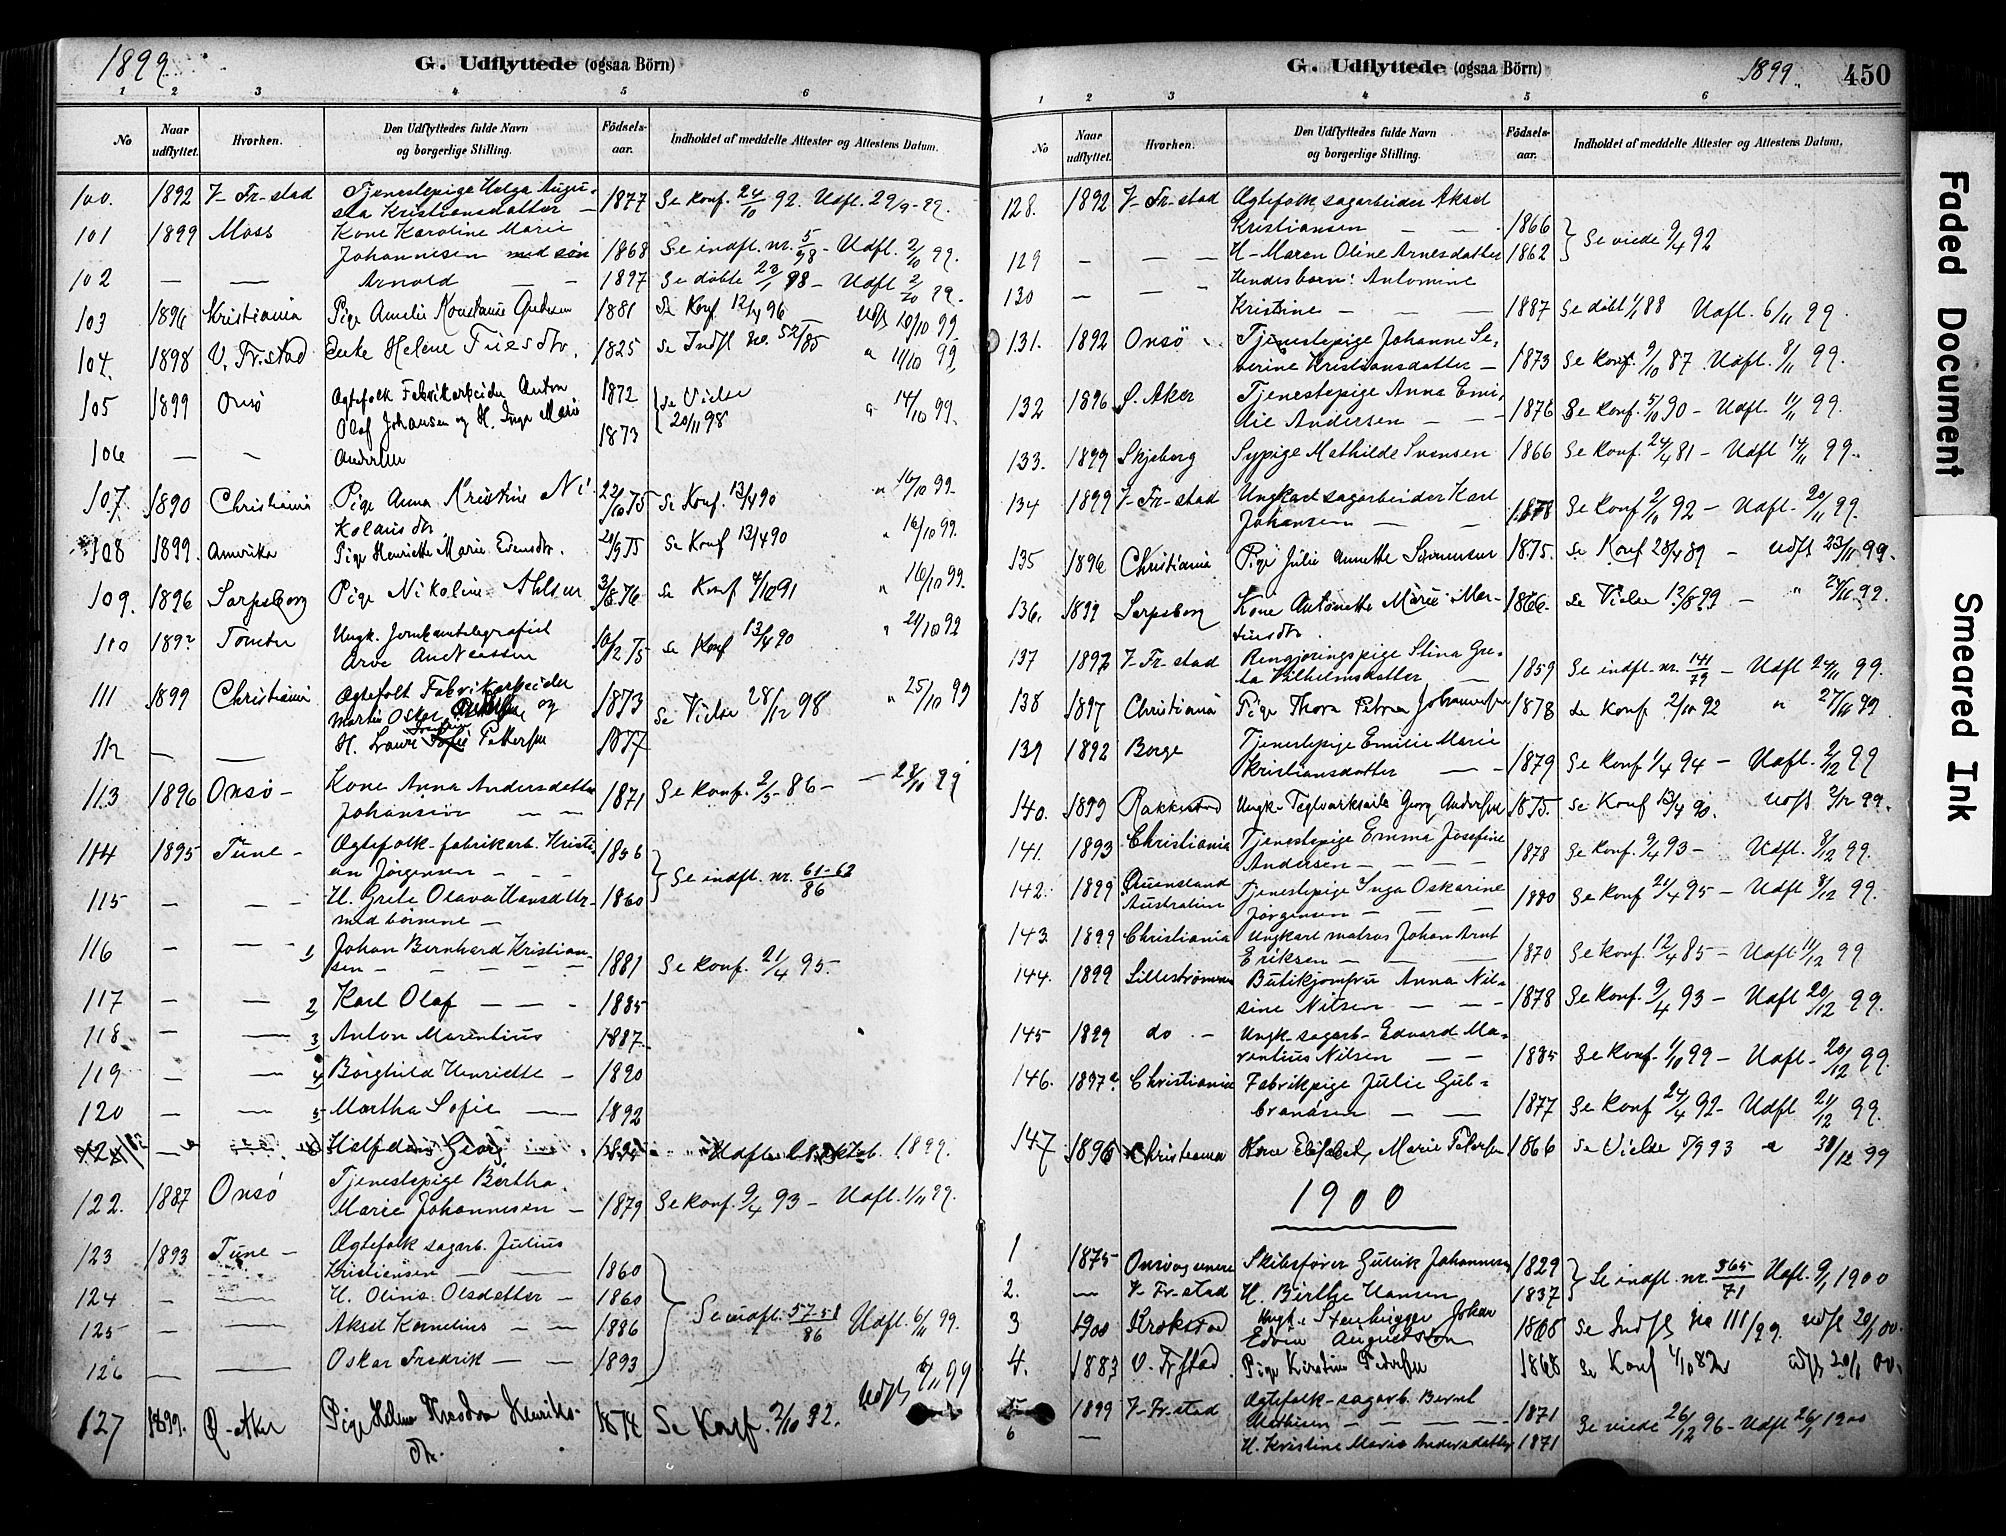 1899.
G. Udflyttede (ogsaa Börn)
1 2 3 4 5 6
No
Naar udflyttet.
Hvorhen.
Den Udflyttedes fulde Navn og borgerlige Stilling.
Födsels-aar.
Indholdet af meddelte Attester og Attestens Datum.
100. 1892 V-Fr-stad Tjenestepige Helga Augu-
sta Kristiansdatter 1877 Se konf. 2/10 92. Udfl. 29/9-99.
101 1899 Moss Kone Karoline Marie
Johannesen med søn 1868 Se indfl. nr. 5/98 - Udfl. 2/10 99.
102 — — Arnold — 1897 Se døbte 23/1 98 - Udfl 2/10 99.
103 1896 Kristiania Pige Amelie Konstance Andersen 1881 Se Konf 12/4 96 Udfl 10/10 99
104. 1898 V. Fr.stad Enke Helene 1825 Se Indfl no. 52/85 " 11/10 99
105 1899 Onsø Ægtefolk Fabrikarbeider Anton 1872 Se Vielse " 14/10 99.
Olaf Johansen og H. Inga Marie 1873 20/11 98
106 — Andersen
107. 1890 Christiania Pige Anna Kristine Ni- 22/10 75 Se Konf. 13/4 90 " 16/10 99.
kolaisdtr.
108 1899. Amerika Pige Henriette Marie Evensdtr. 21/9 75 Se Konf 13/4 90 " 16/10 99.
109. 1896 Sarpsborg Pige Nikoline Ahlsen 3/8 76 Se Konf 4/10 91 " 16/10 99.
110 189? Tomter Ungk. Jernbantelegrafist 10/12 75 Se Konf 13/4 90 " 21/10 99
Arve Andreassen
111 1899 Christiania Ægtefolk Fabrikarbeider
Martin Oskar og 1873 Se Vielse 28/12 98 " 25/10 99
112 — — H. Laura Pettersen 1877
113 1896 Onsø - Kone Anna Andersdatter
Johansen — 1871 Se Konf. 2/5 86 - 28/10 99
114 1895 Tune - Ægtefolk-fabrikarb. Kristi-
an Jørgensen - 1856 Se indfl. nr. 61-62/86
115 — — H. Grete Olava Hansdtr. 1860
med børnene -
116 — — 1 Johan Bernhard Kristian-
sen - 1881 Se konf. 21/4 95.
117 — — 2 Karl Olaf — 1885
118 — — 3 Anton Marentius 1887.
119 — — 4 Borghild Henriette - 1890
120 — — 5 Martha Sofie — 1892
Halfdan Georg Udfl. 1899.
122. 1887 Onsø Tjenestepige Bertha
Marie Johannesen - 1879 Se konf. 9/4 93 - Udfl. 1/11 99.
123 1893 Tune - Ægtefolk sagarb. Julius
Kristiansen — 1860
124 — — H. Oline Olsdatter - 1860
125 — — Aksel Kornelius - 1886 Se indfl. 57-58/86 Udfl. 6/11 99.
126 — — Oskar Fredrik - 1893
127 1899. Ø-Aker Pige Helma Henriks-
dtr. 1878 Se Konf. 2/10 92. Udfl 8/11 99
G. Udflyttede (ogsaa Börn)
1899. 450
1 2 3 4 5 6
No
Naar udflyttet.
Hvorhen.
Den Udflyttedes fulde Navn og borgerlige Stilling.
Födsels-aar.
Indholdet af meddelte Attester og Attestens Datum.
128. 1892 V-Fr-stad Ægtefolk sagarbeider Aksel
Kristiansen — 1866 Se viede 9/4 92
129 — — H-Maren Oline Arnesdatter 1862
130 — — Hendes barn: Antomine
Kristine — 1887 Se døbt 1/1 88 Udfl. 6/11 99.
131. 1892 Onsø Tjenestepige Johanne Se-
verine Kristiansdatter - 1873 Se konf. 9/10 87 Udfl. 8/11 99.
132 1896 S. Aker Tjenestepige Anna Emi-
lie Andersen — 1876 Se konf. 5/10 90 - Udfl. 11/11 99.
133. 1899 Skjeberg Sypige Mathilde Svensen 1866 Se konf. 24/4 81 - Udfl 14/11 99.
134 1899 V-Fr-stad Ungkarl sagarbeider Karl
Johansen — 1878 Se konf 2/10 92 - Udfl. 20/11 99.
135 1896 Christiania Pige Julie Annette Simensen 1875. Se Konf 28/4 89 - Udfl 23/11 99.
136. 1899 Sarpsborg Kone Antonette Marie Mar-
tinsdtr. 1866. Se Vielse 12/8 99 - " 24/11 99.
137 1897 V-Fr-stad Rengjøringspige Stina Gre-
ta Vilhelmsdatter - 1859 Se indfl. nr. 141/79 - Udfl 24/11 99.
138 1897 Christiania Pige Thora Petrea Johannesen 1878 Se konf 2/10 92 " 27/11 99
139 1892 Borge Tjenestepige Emilie Marie
Kristiansdatter — 1879 Se Konf 1/4 94 - Udfl. 2/12 99
140. 1899 Rakkestad Ungk. Teglværksarb Georg Andersen 1875. Se Konf 13/4 90. Udfl 2/12 99.
141. 1893 Christiania Tjenestepige Emma Josefine
Andersen — 1878 Se konf. 9/4 93 - Udfl. 8/12 99.
142. 1899 Qvensland Australien Tjenestepige Inga Oskarine
Jørgensen — 1880 Se konf 21/4 95 - Udfl 8/12 99.
143. 1899 Christiania Ungkarl matros Johan Arnt
Eriksen — 1870 Se konf. 12/4 85 - Udfl 11/12 99
144. 1899 Lillestrømmen Butikjomfru Anna Nil-
sine Nilsen — 1878 Se konf. 9/4 93 - Udfl 20/12 99.
145 1899 do - Ungk-sagarb- Edvard Ma-
rentius Nilsen — 1885 Se konf. 1/10 99 - Udfl. 20/12 99.
146. 1897 Christiania Fabrikpige Julie Gul-
brandsen — 1877 Se konf 24/4 92 - Udfl 21/12 99.
147 1896 Christiania Kone Elisabeth Marie Petersen 1866 Se Vielse 5/9 93 " 30/12 99
1900
1 1875 Onsø og senere Skibsfører Gulrik Johannesen 1829 Se indfl. nr. 365/71 Udfl. 9/1 1900
2. — V-Fr-stad H. Birthe Hansen 1837
3 1900 Krokstad Ungk. Stenhugger Johan
Edvin Augustson 1868 Se Indfl no 111/99. Udfl 20/1 00.
4. 1883 V. Frstad Pige Kirstine Pedersen 1868 Se Konf 1/10 82 Udfl 20/1 00.
5 1899 V-Fr-stad Ægtefolk-sagarb. Bernt
Mathisen — 1871 Se viede 26/12 96 - Udfl 26/1 1900
6 — H. Kristine Marie Andersdatter 1871
Faded Document
Smeared Ink